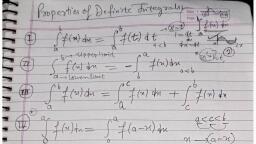 Properties of Definite Integrals
I ∫_a^b f(x) dx = ∫_a^b f(t) dt
II ∫_a^b f(x) dx = - ∫_b^a f(x) dx
b → upper limit
a → lower limit
a<b
III ∫_a^b f(x) dx = ∫_a^c f(x) dx + ∫_c^b f(x) dx
a<c<b
IV ∫_0^a f(x) dx = ∫_0^a f(a-x) dx
x → (a-x)